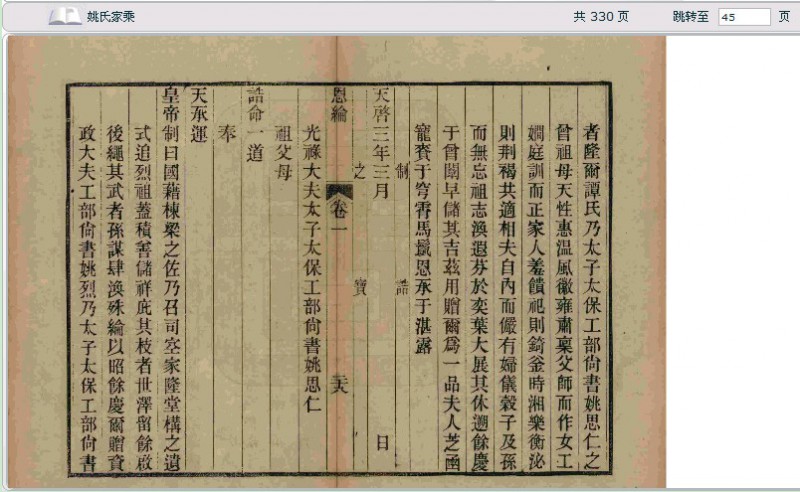 姚氏家乘
共 330 页
跳转至 45 页
者隆爾譚氏乃太子太保工部尙書姚思仁之
曾祖母天性惠温風徽雍肅稟父師而作女工
嫺庭訓而正家人羞饋祀則錡釜時湘樂衡泌
則荆褐共適相夫自內而儼有婦儀穀子及孫
而無忘祖志渙遐芬於奕葉大展其休遡餘慶
于曾閫早儲其吉茲用贈爾爲一品夫人芝函
寵賚于穹霄馬鬛恩承于湛露
制誥
天啓三年三月 日
之寶
恩綸 卷一 二六
光祿大夫太子太保工部尙書姚思仁
祖父母
誥命一道
奉
天承運
皇帝制曰國藉棟梁之佐乃召司空家隆堂構之遺
式追烈祖蓋積善儲祥庇其枝者世澤留餘啟
後繩其武者孫謀肆渙殊綸以昭餘慶爾贈資
政大夫工部尙書姚烈乃太子太保工部尙書